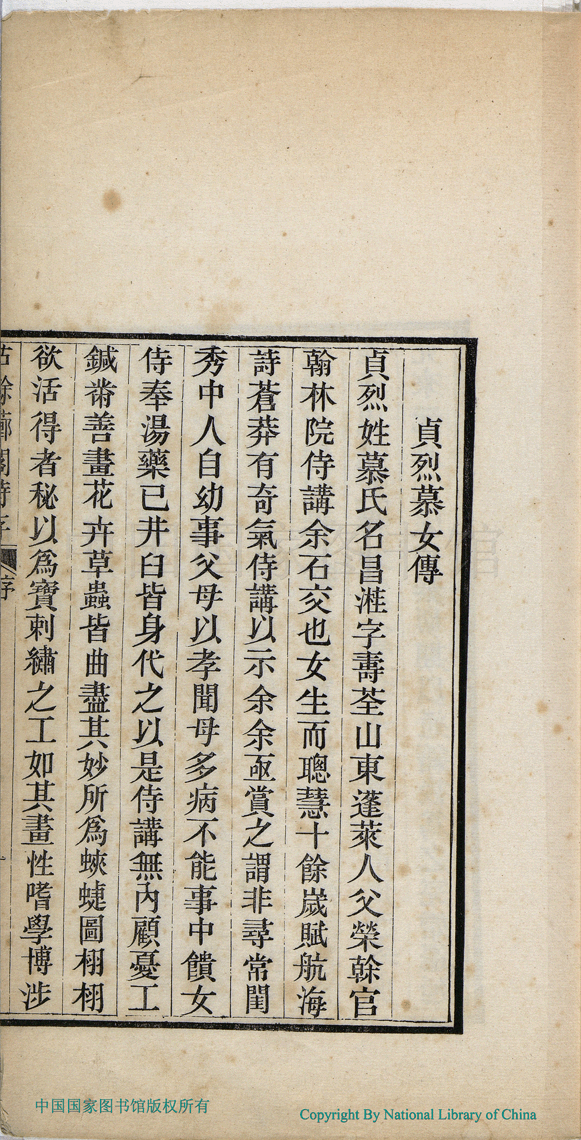 貞烈慕女傳
貞烈姓慕氏名昌溎字壽荃山東蓬萊人父榮榦官
翰林院侍講余石交也女生而聰慧十餘歲賦航海
詩蒼莽有奇氣侍講以示余余亟賞之謂非尋常閨
秀中人自幼事父母以孝聞母多病不能事中饋女
侍奉湯藥已井臼皆身代之以是侍講無內顧憂工
鍼黹善畫花卉草蟲皆曲盡其妙所為蛺蜨圖栩栩
欲活得者秘以為寶刺繡之工如其畫性嗜學博涉
序
中国国家图书馆版权所有
Copyright By National Library of China